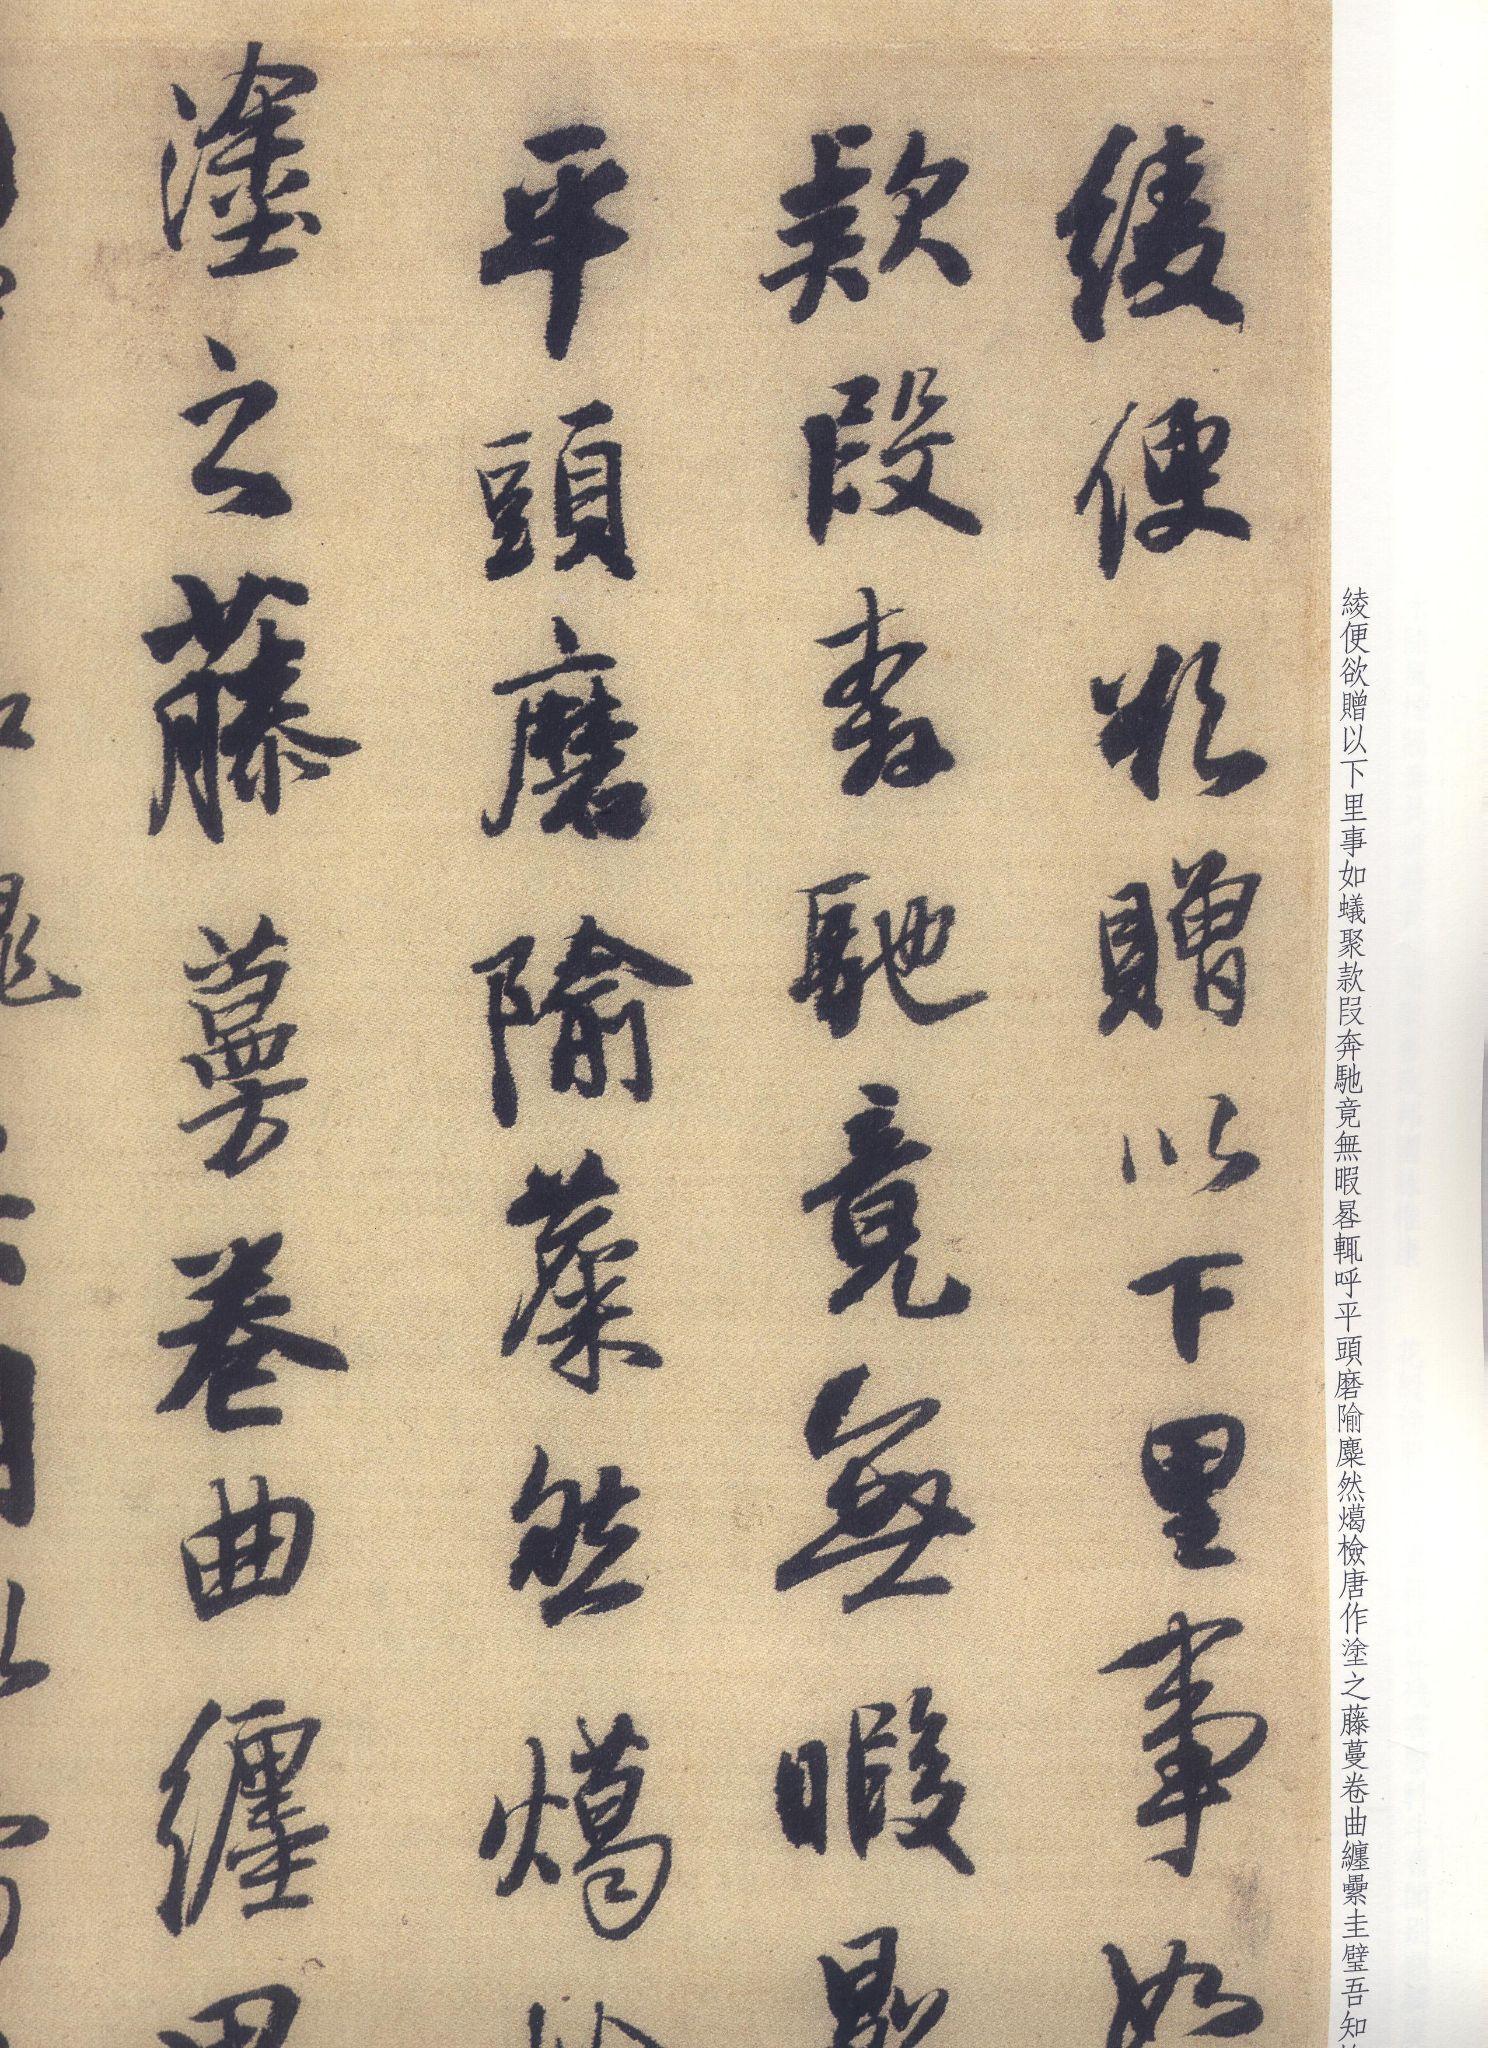 綾便欲贈以下里事如
款段奔馳竟無暇晷
平頭磨隃麋然爝
塗之藤蔓卷曲纏
綾便欲贈以下里事如蟻聚款段奔馳竟無暇晷輒呼平頭磨隃麋然爝檢唐作塗之藤蔓卷曲纏纍圭璧吾知